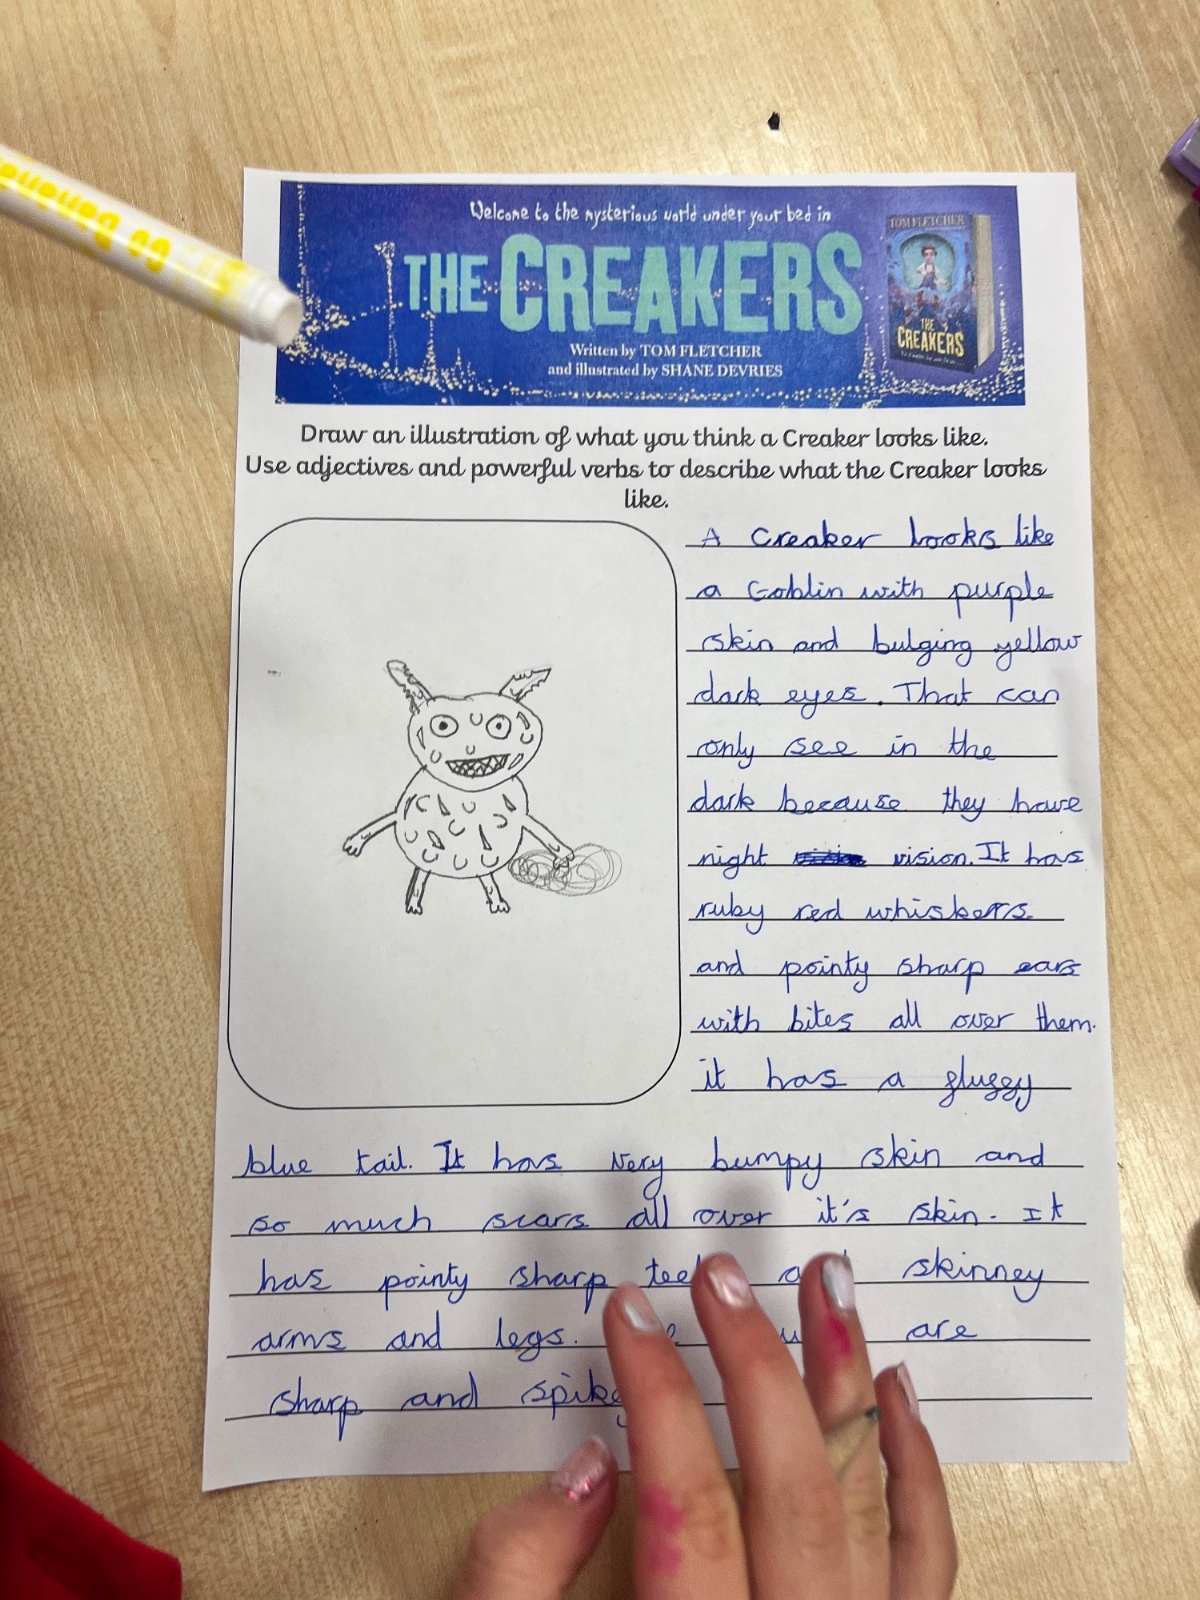 Welcome to the mysterious world under your bed in
THE CREAKERS
Written by TOM FLETCHER
and illustrated by SHANE DEVRIES
TOM FLETCHER
THE
CREAKERS
Draw an illustration of what you think a Creaker looks like.
Use adjectives and powerful verbs to describe what the Creaker looks
like.
A Creaker looks like
a Goblin with purple
skin and bulging yellow
dark eyes. That can
only see in the
dark because they have
night vision. It has
ruby red whiskers
and pointy sharp ears
with bites all over them.
it has a fluffy
blue tail. It has very bumpy skin and
so much scars all over it's skin. It
has pointy sharp skinney
arms and legs. are
sharp and